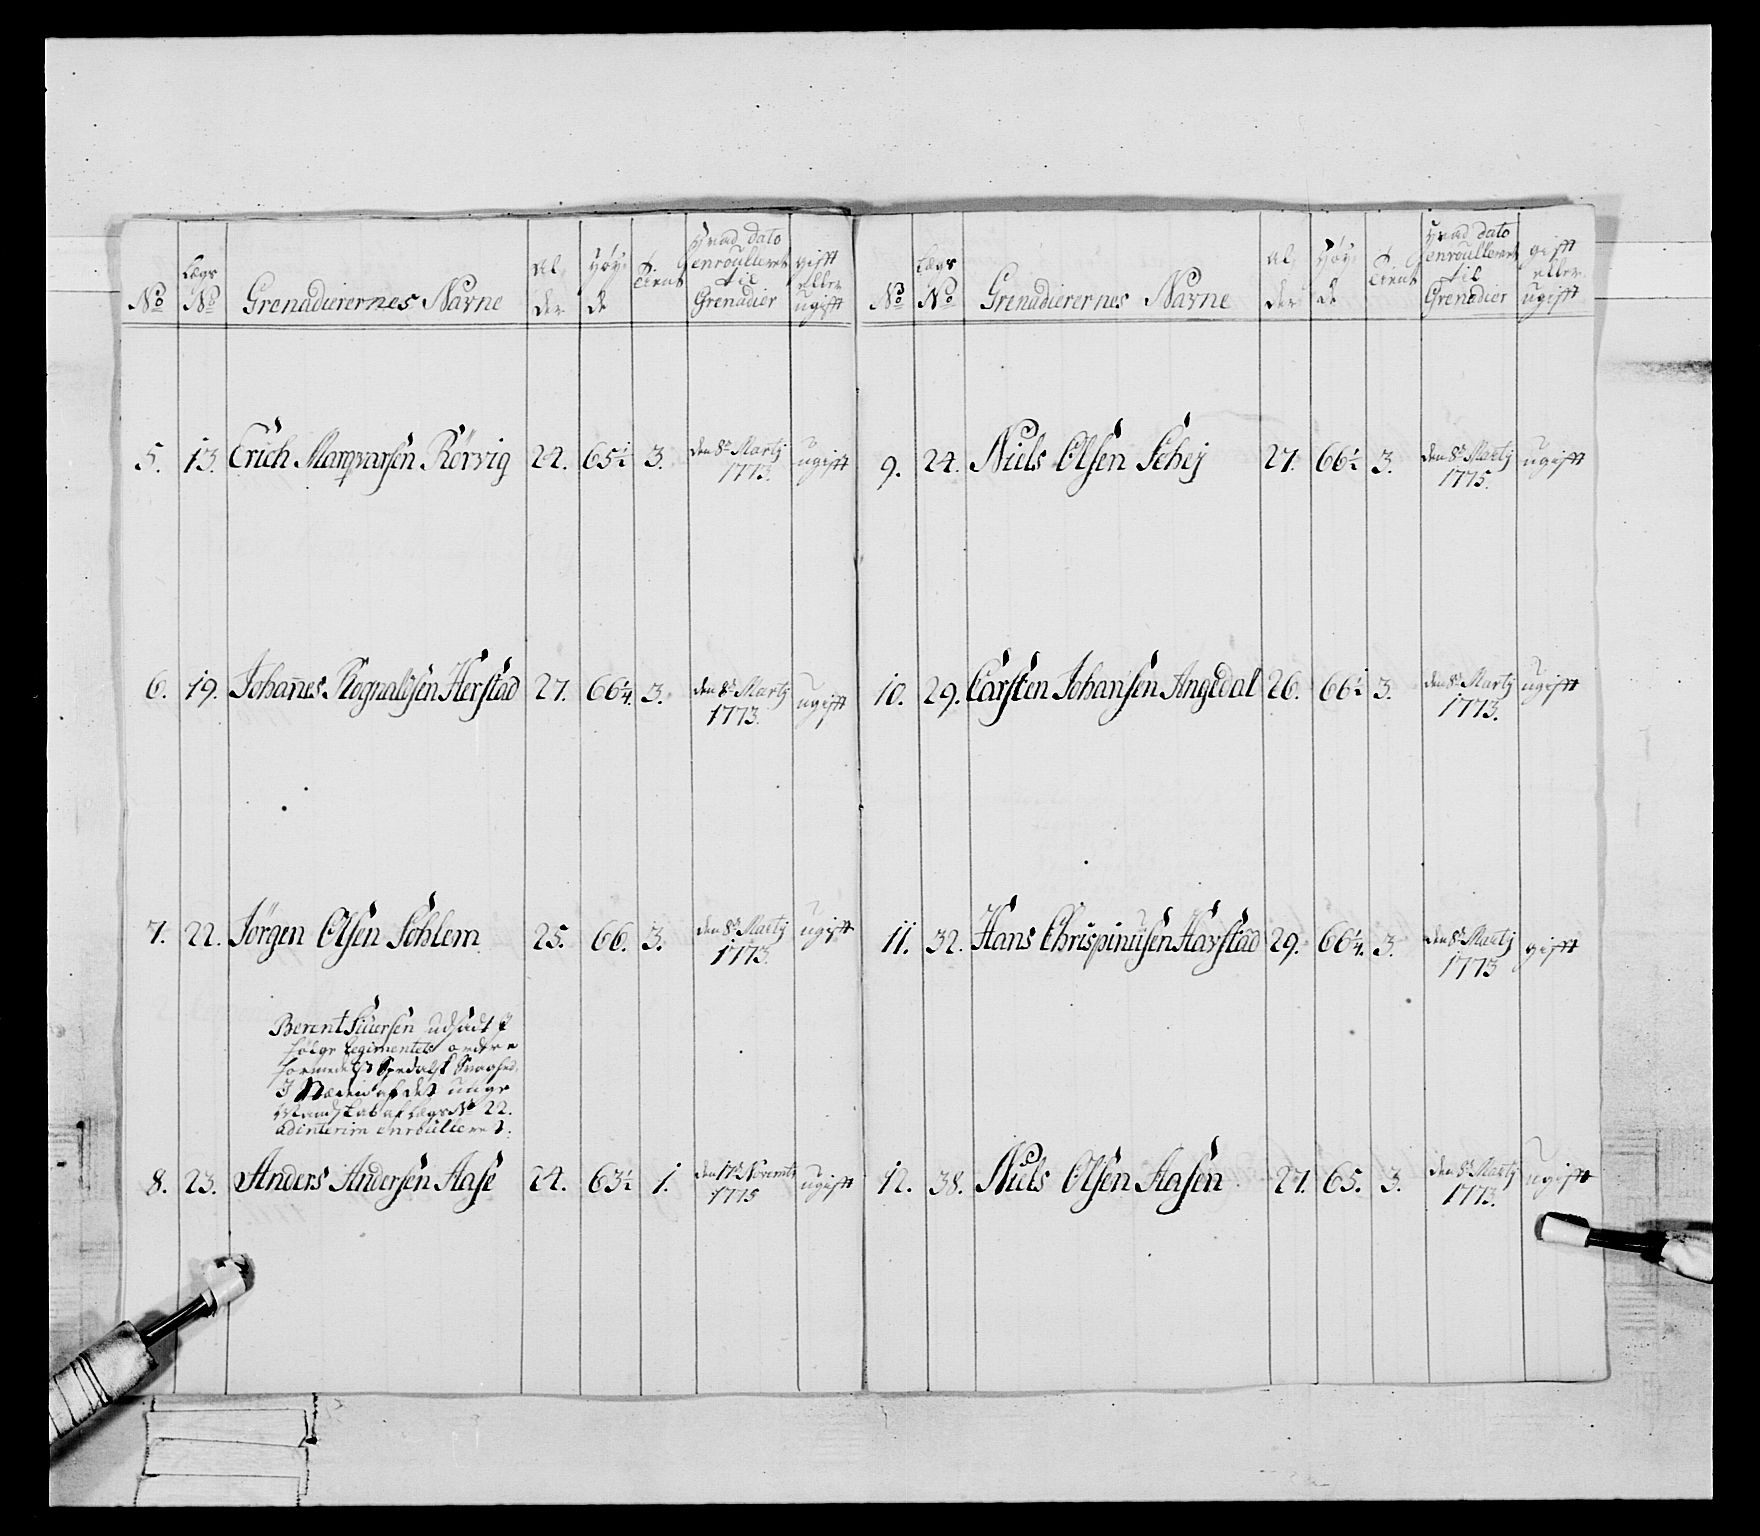 No Lægs No Grenadierernes Navne Al der Høy de tient Hvad dato enroulleret til Grenadier gift eller ugift
5. 13. Erich Marqvarsen Rørvig 24. 65½ 3. den 8de Martj 1773. ugift
6. 19. Johañes Rognaldsen Herstad 27. 66¼. 3. den 8de Martj 1773. ugift
7. 22. Jörgen Olsen Sohlem 25. 66. 3. den 8de Martj 1773. ugift
Berent Siversen udsadt j
følge Regimentets ordre
formedelst Spedalsk Svaghed,
I Stæden af det unge
Mandskab af Lægs No 22.
adinterim enroulleret.
8. 23. Anders Andersen Aase 24. 63½ 1. den 17de Novembr 1775 ugift
No Lægs No Grenadierernes Navne Al der Høy de tient Hvad dato enroulleret til Grenadier gift eller ugift
9. 24. Niels Olsen Schej 27. 66½ 3. den 8de Martj 1775. ugift
10. 29. Carsten Johansen Angedal 26. 66½ 3. den 8de Martj 1773. ugift
11. 32. Hans Chrispinusen Harstad 29. 66¼. 3. den 8de Martj 1773 gift
12. 38. Niels Olsen Aasen 27. 65. 3. den 8de Martj 1773. ugift